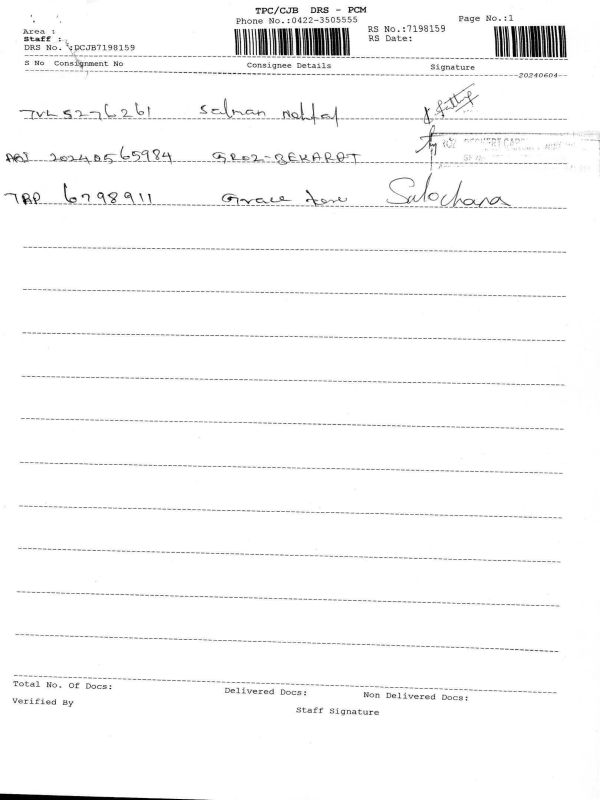 TPC/CJB DRS - PCM
Phone No.:0422-3505555 Page No.:1
RS No.:7198159
Area :
Staff : RS Date:
DRS No. :DCJB7198159
S No Consignment No Consignee Details Signature
20240604
TVL 5276261 Salman
20240565984 GROZ-BEKART
TRP 6798911 Grace Sulochana
Total No. Of Docs: Delivered Docs: Non Delivered Docs:
Verified By Staff Signature